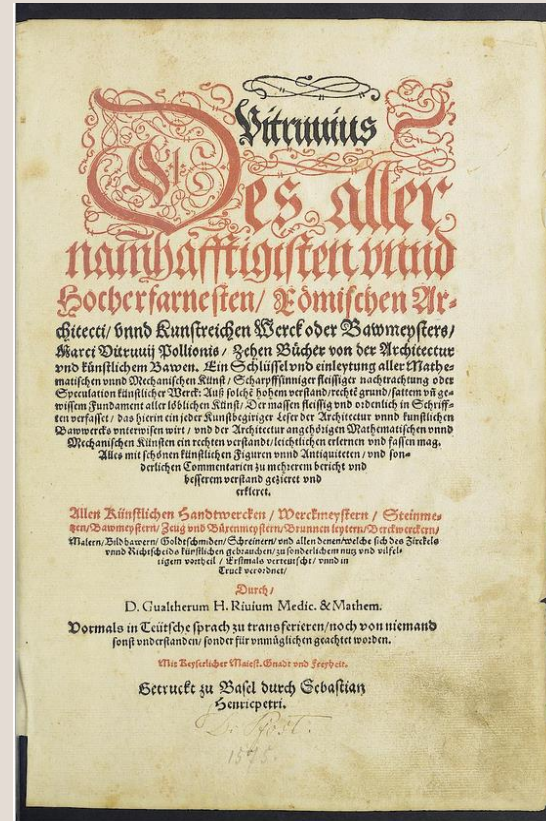 Vitruuius
Des aller
namhafftigisten vnnd
Hocherfarnesten/ Römischen Ar-
chitecti/ vnnd Kunstreichen Werck oder Bawmeysters/
Marci Vitruuij Pollionis/ Zehen Bücher von der Architectur
vnd künstlichem Bawen. Ein Schlüssel vnd einleytung aller Mathe-
matischen vnnd Mechanischen Künst/ Scharpffsinniger fleissiger nachtrachtung oder
Speculation künstlicher Werck: Auß solchē hohem verstand/ rechtē grund/ sattem vn̄ ge-
wissem Fundament aller löblichen Künst/ Der massen fleissig vnd ordenlich in Schriff-
ten verfasset/ das hierin ein jeder Kunstbegiriger Leser der Architectur vnnd künstlichen
Bawwercks vnterwisen wirt/ vnd der Architectur angehörigen Mathematischen vnnd
Mechanischen Künsten ein rechten verstandt/ leichtlichen erlernen vnd fassen mag.
Alles mit schönen künstlichen Figuren vnnd Antiquiteten/ vnd son-
derlichen Commentarien zu mehrerem bericht vnd
besserem verstand gezieret vnd
erkleret.
Allen Künstlichen Handtwercken/ Werckmeystern/ Steinme-
tzen/ Bawmeystern/ Zeug vnd Büxenmeystern/ Brunnen leytern/ Berckwerckern/
Malern/ Bildhawern/ Goldtschmiden/ Schreinern/ vnd allen denen/ welche sich des Zirckels
vnnd Richtscheids künstlichen gebrauchen/ zu sonderlichem nutz vnd vilfel-
tigem vortheil/ Erstmals verteutscht/ vnnd in
Truck verordnet/
Durch/
D. Gualtherum H. Riuium Medic. & Mathem.
Vormals in Teütsche sprach zu transferieren/ noch von niemand
sonst vnderstanden/ sonder für vnmüglichen geachtet worden.
Mit Keyserlicher Maiest. Gnadt vnd Freyheit.
Getruckt zu Basel durch Sebastian
Henricpetri.
1575.